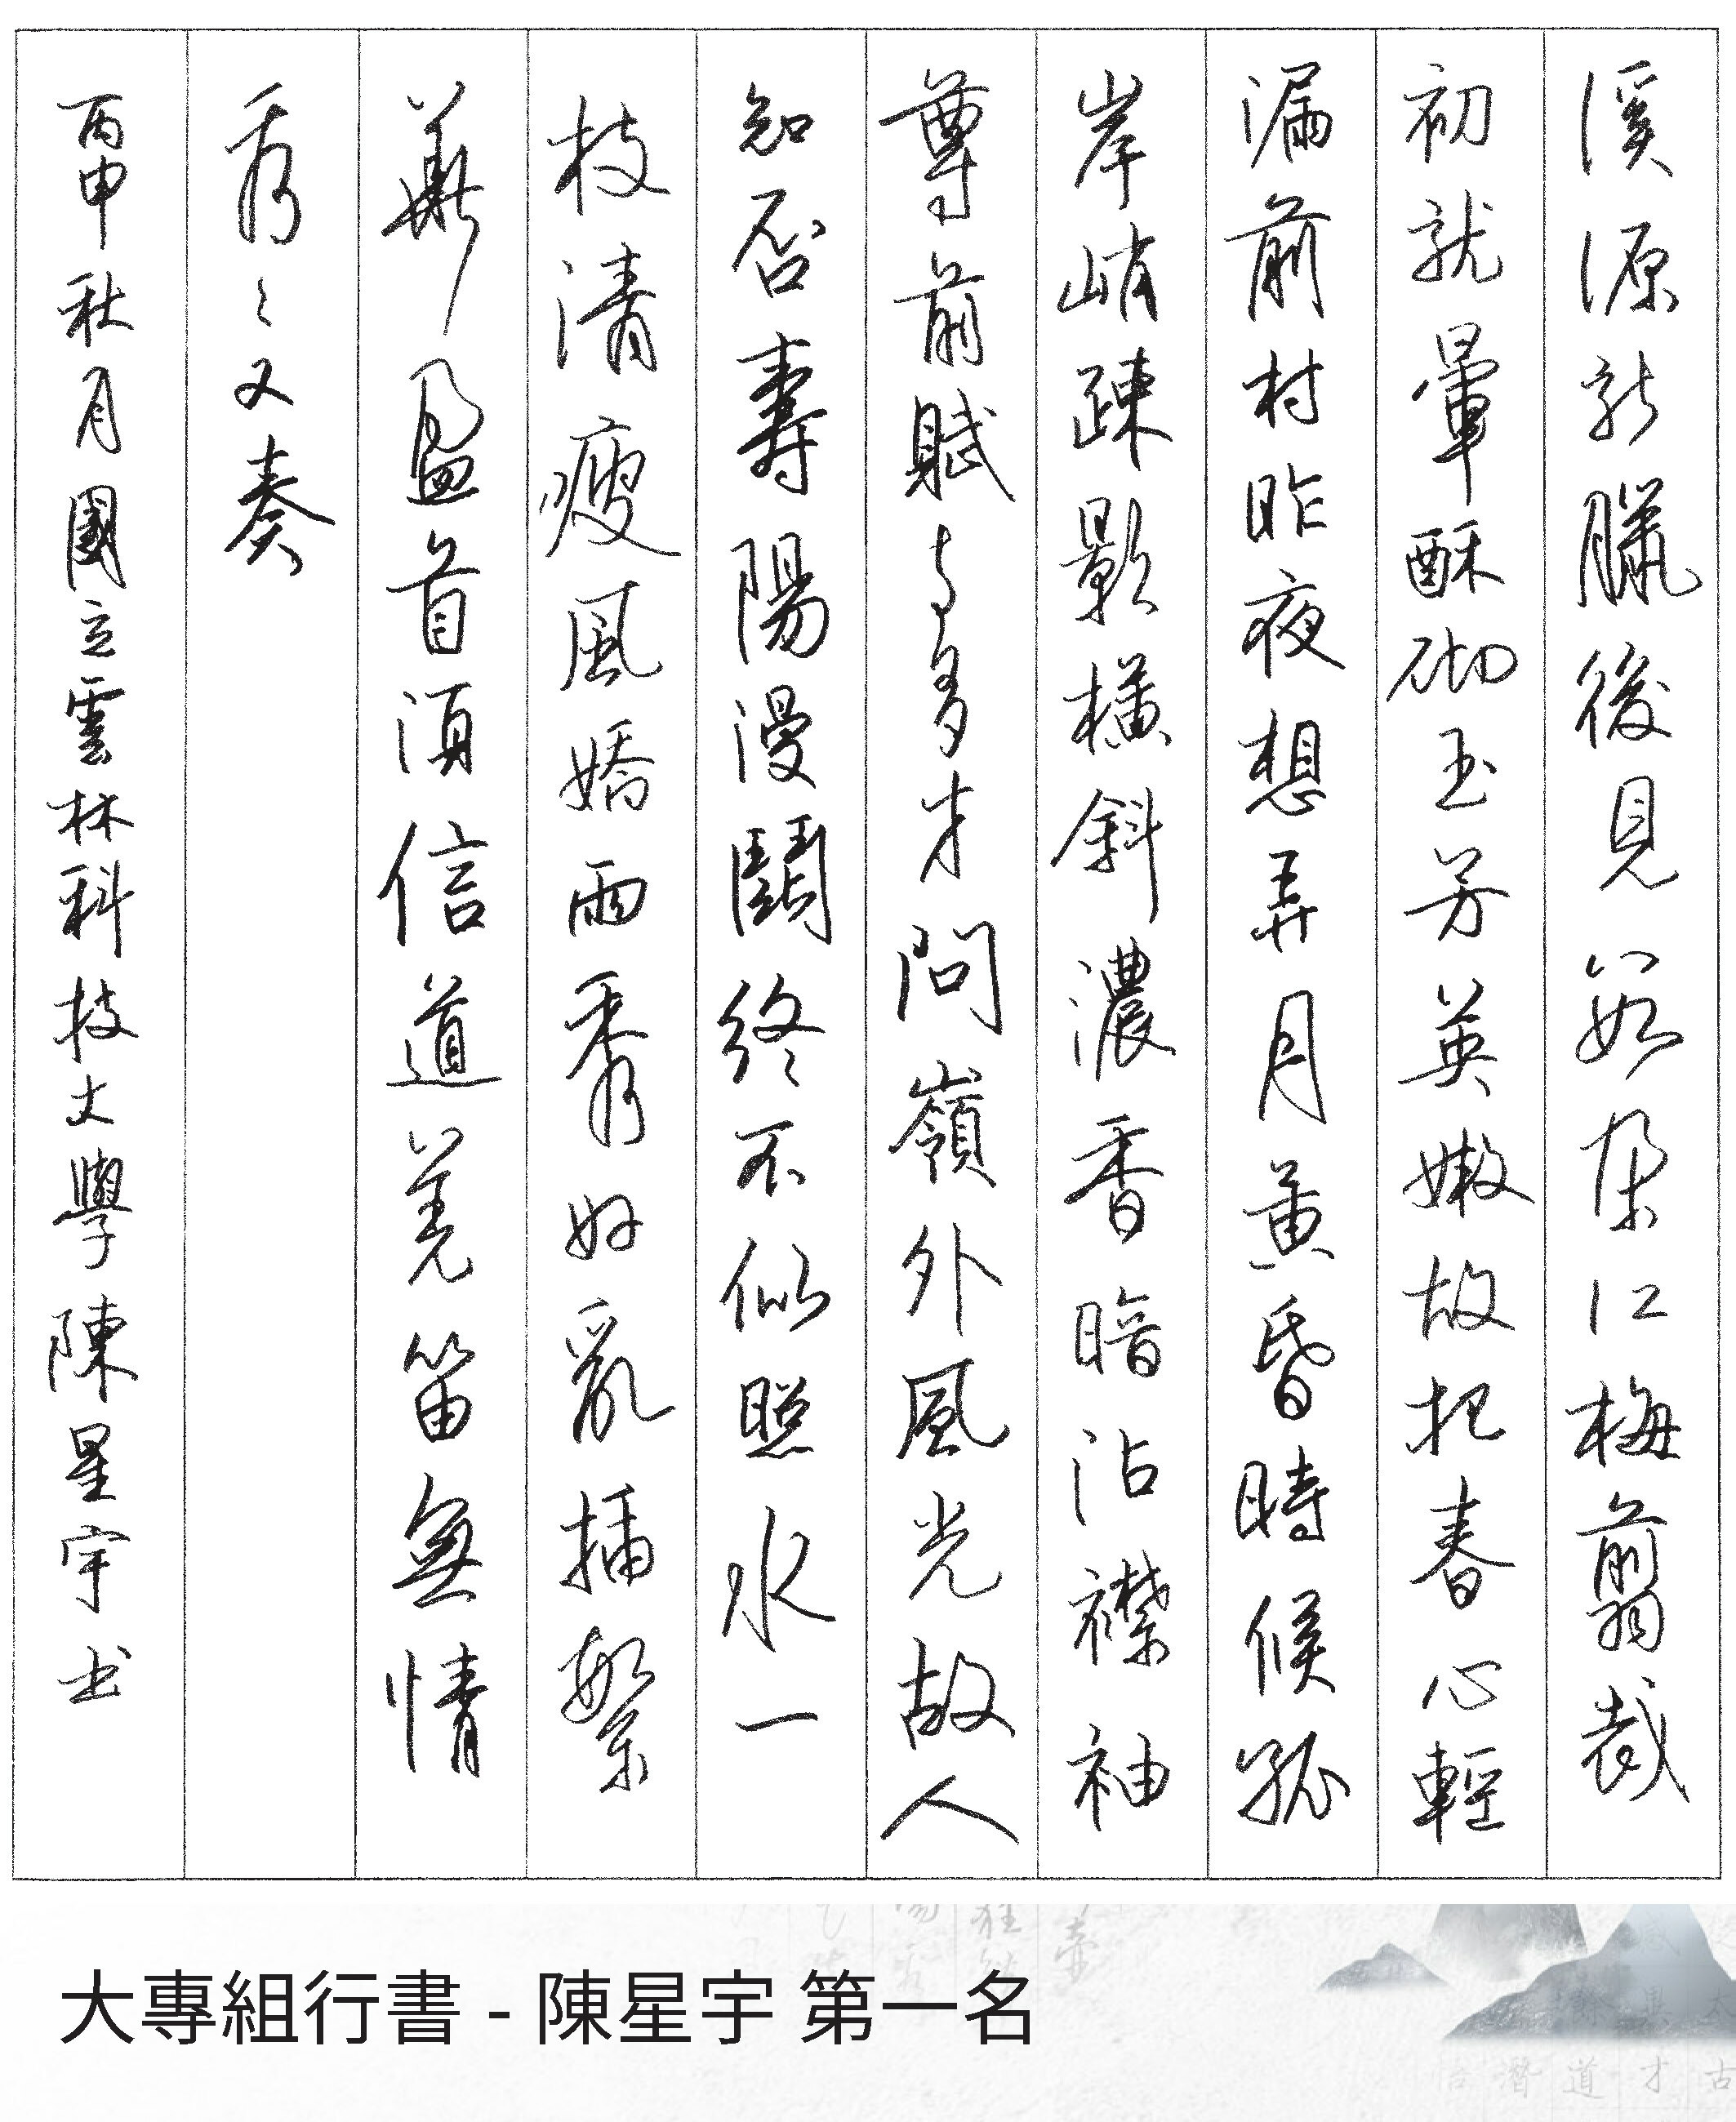 溪源新臘後見數朵江梅翦裁
初就暈酥砌玉芳英嫩故把春心輕
漏前村昨夜想弄月黃昏時候孤
岸峭疎影橫斜濃香暗沾襟袖
尊前賦与多才問嶺外風光故人
知否壽陽漫鬪終不似照水一
枝清瘦風嬌雨秀好亂插繁
華盈首須信道羌笛無情
看〻又奏
丙申秋月國立雲林科技大學陳星宇书
大專組行書 - 陳星宇 第一名